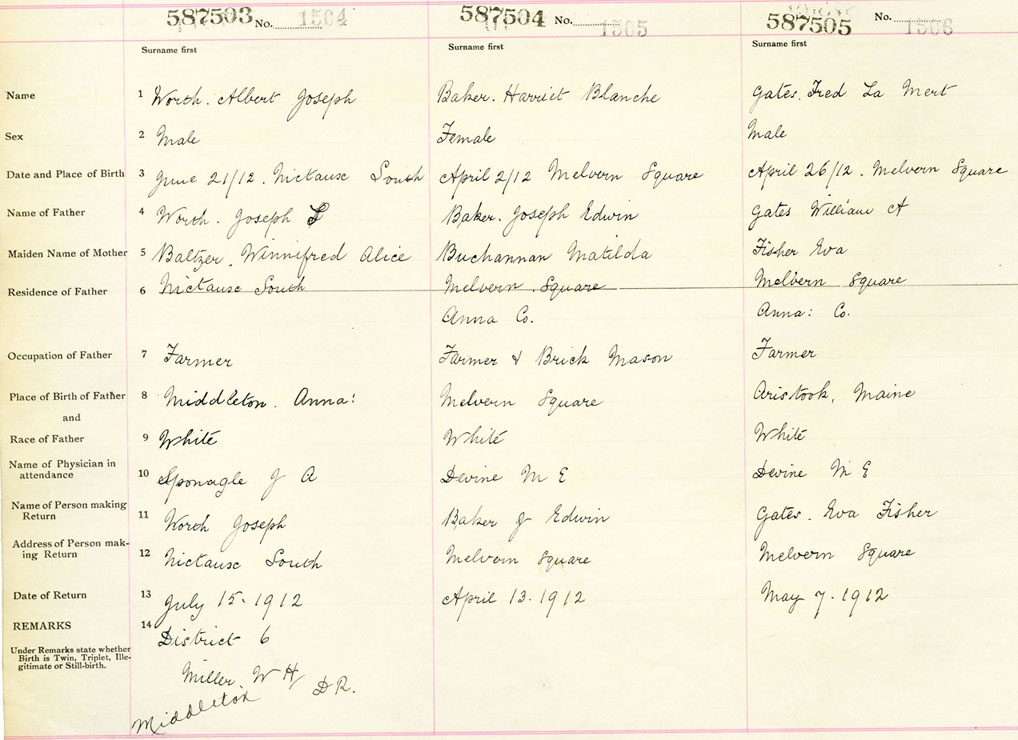 587503 No. 1564 587504 No. 1565 587505 No. 1566
Surname first Surname first Surname first
Name 1 Worth. Albert Joseph Baker. Harriet Blanche Gates. Fred La Mert
Sex 2 Male Female Male
Date and Place of Birth 3 June 21/12. Nictause South April 2/12 Melvern Square April 26/12. Melvern Square
Name of Father 4 Worth. Joseph Baker. Joseph Edwin Gates William A
Maiden Name of Mother 5 Baltzer. Winnifred Alice Buchannan Matilda Fisher Eva
Residence of Father 6 Nictause South Melvern Square Melvern Square
Anna Co. Anna: Co.
Occupation of Father 7 Farmer Farmer & Brick Mason Farmer
Place of Birth of Father 8 Middleton. Anna: Melvern Square Aristook, Maine
and
Race of Father 9 White White White
Name of Physician in
attendance 10 Sponagle J A Devine M E Devine M E
Name of Person making
Return 11 Worth Joseph Baker J Edwin Gates. Eva Fisher
Address of Person mak-
ing Return 12 Nictause South Melvern Square Melvern Square
Date of Return 13 July 15. 1912 April 13. 1912 May 7. 1912
REMARKS 14 District 6
Under Remarks state whether
Birth is Twin, Triplet, Ille-
gitimate or Still-birth.
Miller. W H D R.
Middleton